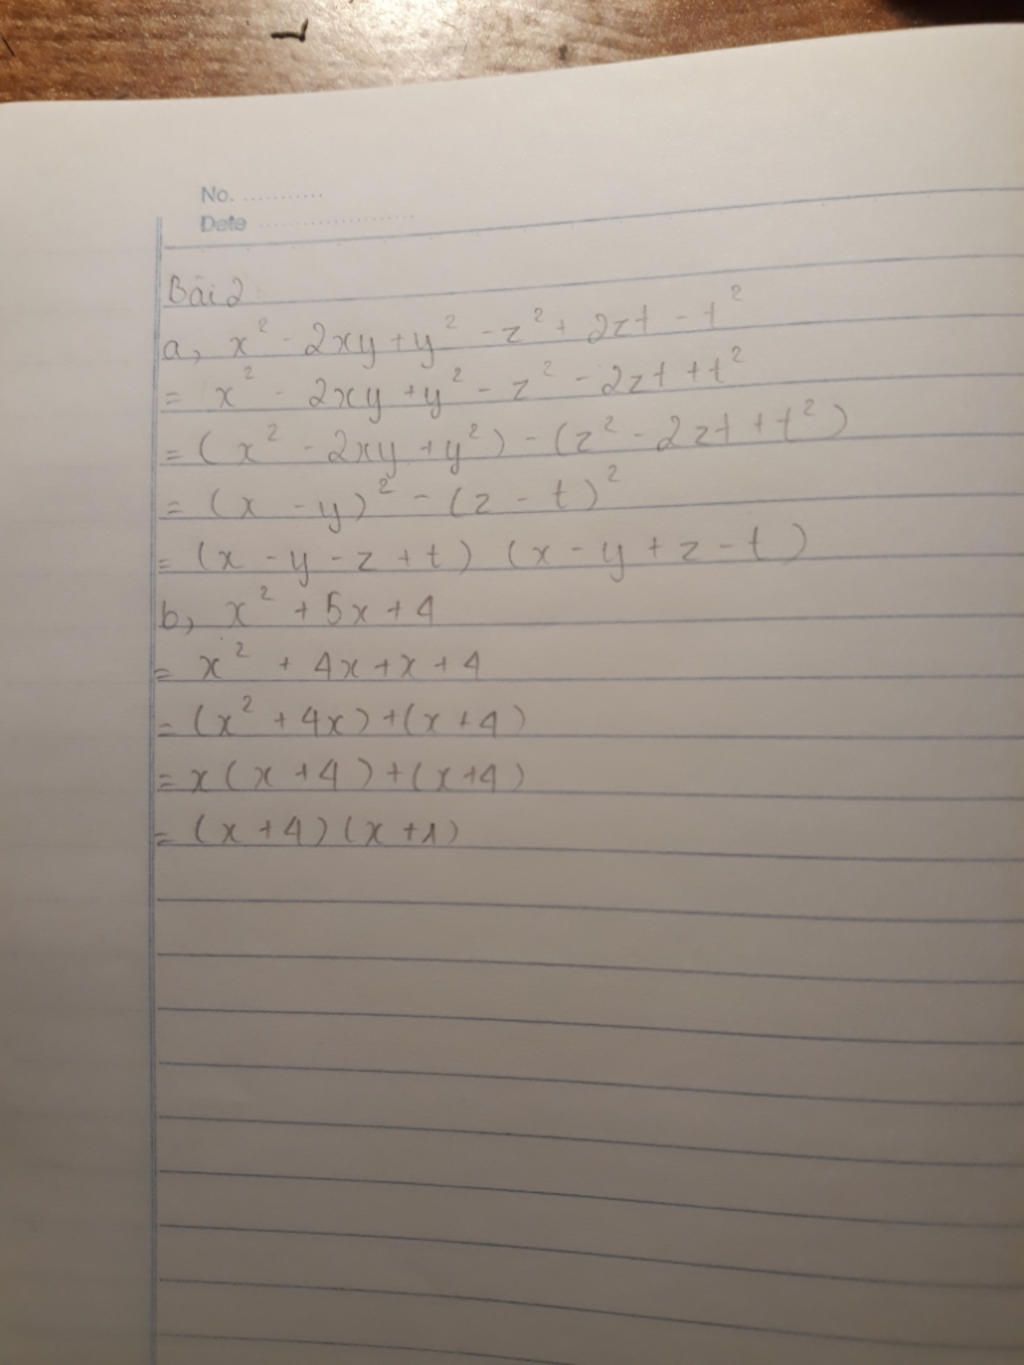 No. ...........
Date ....................
Bài 2
a, x² - 2xy + y² - z² + 2zt - t²
= x² - 2xy + y² - z² - 2zt + t²
= (x² - 2xy + y²) - (z² - 2zt + t²)
= (x - y)² - (z - t)²
= (x - y - z + t) (x - y + z - t)
b, x² + 5x + 4
= x² + 4x + x + 4
= (x² + 4x) + (x + 4)
= x(x + 4) + (x + 4)
= (x + 4)(x + 1)